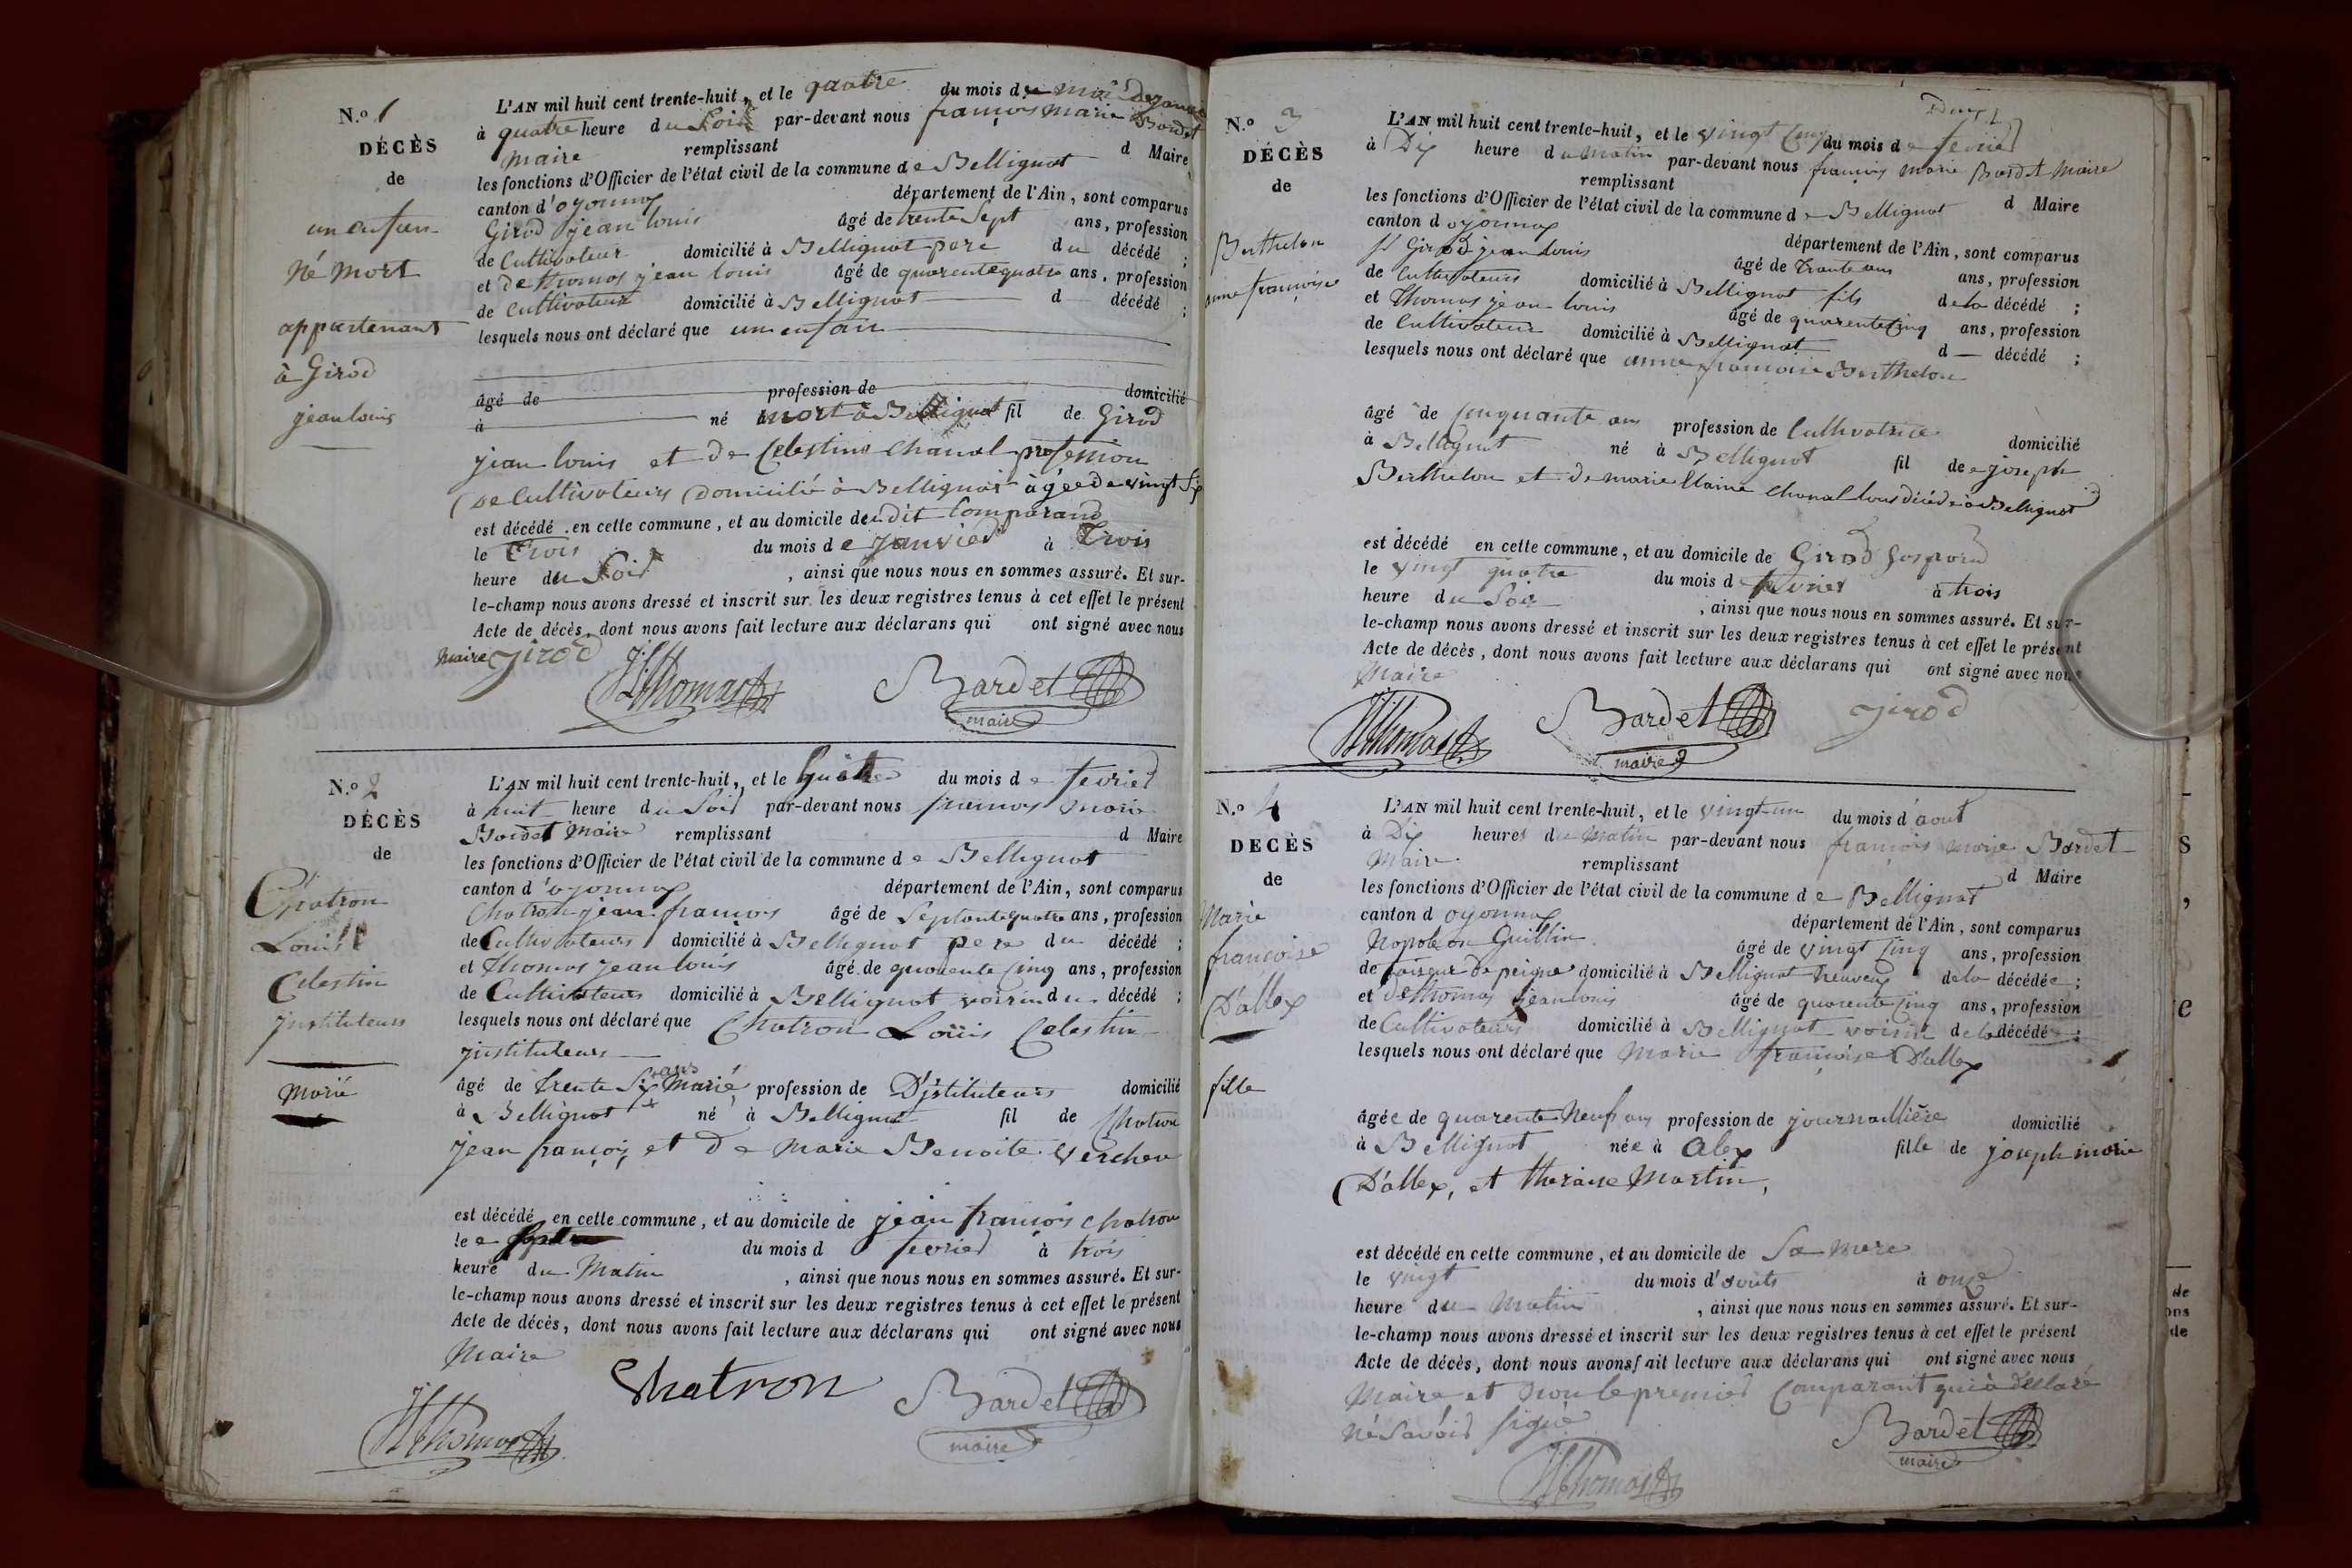 N.º 1
DÉCÈS
de
un enfan
Né mort
appartenant
à Girod
jean louis
L'AN mil huit cent trente-huit, et le quatre du mois de
à quatre heure du Soir par-devant nous françois marie Bardet
Maire remplissant d Maire
les fonctions d'Officier de l'état civil de la commune de Bellignat
canton d'oyonnax département de l'Ain, sont comparus
Girod jean louis âgé de trente Sept ans, profession
de Cultivateur domicilié à Bellignat pere du décédé ;
et De thomas jean louis âgé de quarente quatre ans, profession
de Cultivateur domicilié à Bellignat d décédé ;
lesquels nous ont déclaré que un enfan
âgé de profession de domicilié
à né mort à Bellignat fil de Girod
jean louis et de Celestine Chanal profession
de Cultivateurs domicilié à Bellignat âgée de vingt Six
est décédé en cette commune, et au domicile dudit Comparand
le trois du mois de janvier à trois
heure du Soir , ainsi que nous nous en sommes assuré. Et sur-
le-champ nous avons dressé et inscrit sur les deux registres tenus à cet effet le présent
Acte de décès, dont nous avons fait lecture aux déclarans qui ont signé avec nous
Maire girod
JLThomas Bardet
maire
N.º 2
DÉCÈS
de
Chatron
Louis
Celestin
justituteur
Marié
L'AN mil huit cent trente-huit, et le du mois de fevrier
à huit heure du Soir par-devant nous francois marie
Bardet Maire remplissant d Maire
les fonctions d'Officier de l'état civil de la commune de Bellignat
canton d'oyonnax département de l'Ain, sont comparus
Chatron jean francois âgé de Septante quatre ans, profession
de Cultivateurs domicilié à Bellignat pere du décédé ;
et Thomas jean louis âgé de quarente Cinq ans, profession
de Cultivateurs domicilié à Bellignat voisin du décédé ;
lesquels nous ont déclaré que Chatron Louis Celestin
justituteur
âgé de trente Six ans Marié, profession de D'jstituteurs domicilié
à Bellignat né à Bellignat fil de Chatron
jean françois et De Marie Benoite Vercheu
est décédé en cette commune, et au domicile de jean francois chatron
le du mois d fevrier à trois
heure du Matin , ainsi que nous nous en sommes assuré. Et sur-
le-champ nous avons dressé et inscrit sur les deux registres tenus à cet effet le présent
Acte de décès, dont nous avons fait lecture aux déclarans qui ont signé avec nous
Maire
Chatron Bardet
JLThomas maire
N.º 3
DÉCÈS
de
Berthelon
anne françoise
L'AN mil huit cent trente-huit, et le vingt Cinq du mois de fevrier
à Dix heure du matin par-devant nous françois Marie Bardet Maire
remplissant d Maire
les fonctions d'Officier de l'état civil de la commune de Bellignat
canton d oyonnax département de l'Ain, sont comparus
Girod jean louis âgé de trante ans ans, profession
de Cultivateurs domicilié à Bellignat fils de la décédé ;
et Thomas jean louis âgé de quarente Cinq ans, profession
de Cultivateur domicilié à Bellignat d décédé ;
lesquels nous ont déclaré que anne francoise Berthelon
âgé de Cinquante ans profession de Cultivatrice domicilié
à Bellignat né à Bellignat fil de joseph
Berthelon et de marie Claire Chanal tous décédé à Bellignat
est décédé en cette commune, et au domicile de Girod Gaspard
le vingt quatre du mois d fevrier à trois
heure du Soir , ainsi que nous nous en sommes assuré. Et sur-
le-champ nous avons dressé et inscrit sur les deux registres tenus à cet effet le présent
Acte de décès, dont nous avons fait lecture aux déclarans qui ont signé avec nous
Maire
JLThomas Bardet girod
maire
N.º 4
DECÈS
de
Marie
francoise
D'allex
fille
L'AN mil huit cent trente-huit, et le vingt un du mois d'aout
à Dix heures du Matin par-devant nous françois marie Bardet
Maire remplissant d Maire
les fonctions d'Officier de l'état civil de la commune de Bellignat
canton d oyonnax département de l'Ain, sont comparus
Napoleon Guillin âgé de vingt Cinq ans, profession
de faiseur de peigne domicilié à Bellignat neuveux de la décédée ;
et de thomas jean louis âgé de quarente Cinq ans, profession
de Cultivateurs domicilié à Bellignat voisin de la décédé ;
lesquels nous ont déclaré que Marie françoise D'allex
âgée de quarente Neuf ans profession de journaillière domicilié
à Bellignat née à Alex fille de joseph marie
D'allex, et theraise Martin,
est décédé en cette commune, et au domicile de Sa Mere
le vingt du mois d'aouts à onze
heure du Matin , ainsi que nous nous en sommes assuré. Et sur-
le-champ nous avons dressé et inscrit sur les deux registres tenus à cet effet le présent
Acte de décès, dont nous avons fait lecture aux déclarans qui ont signé avec nous
Maire et non le premier Comparant qui à déclaré
Né Savoir signé
Bardet
maire
JLThomas